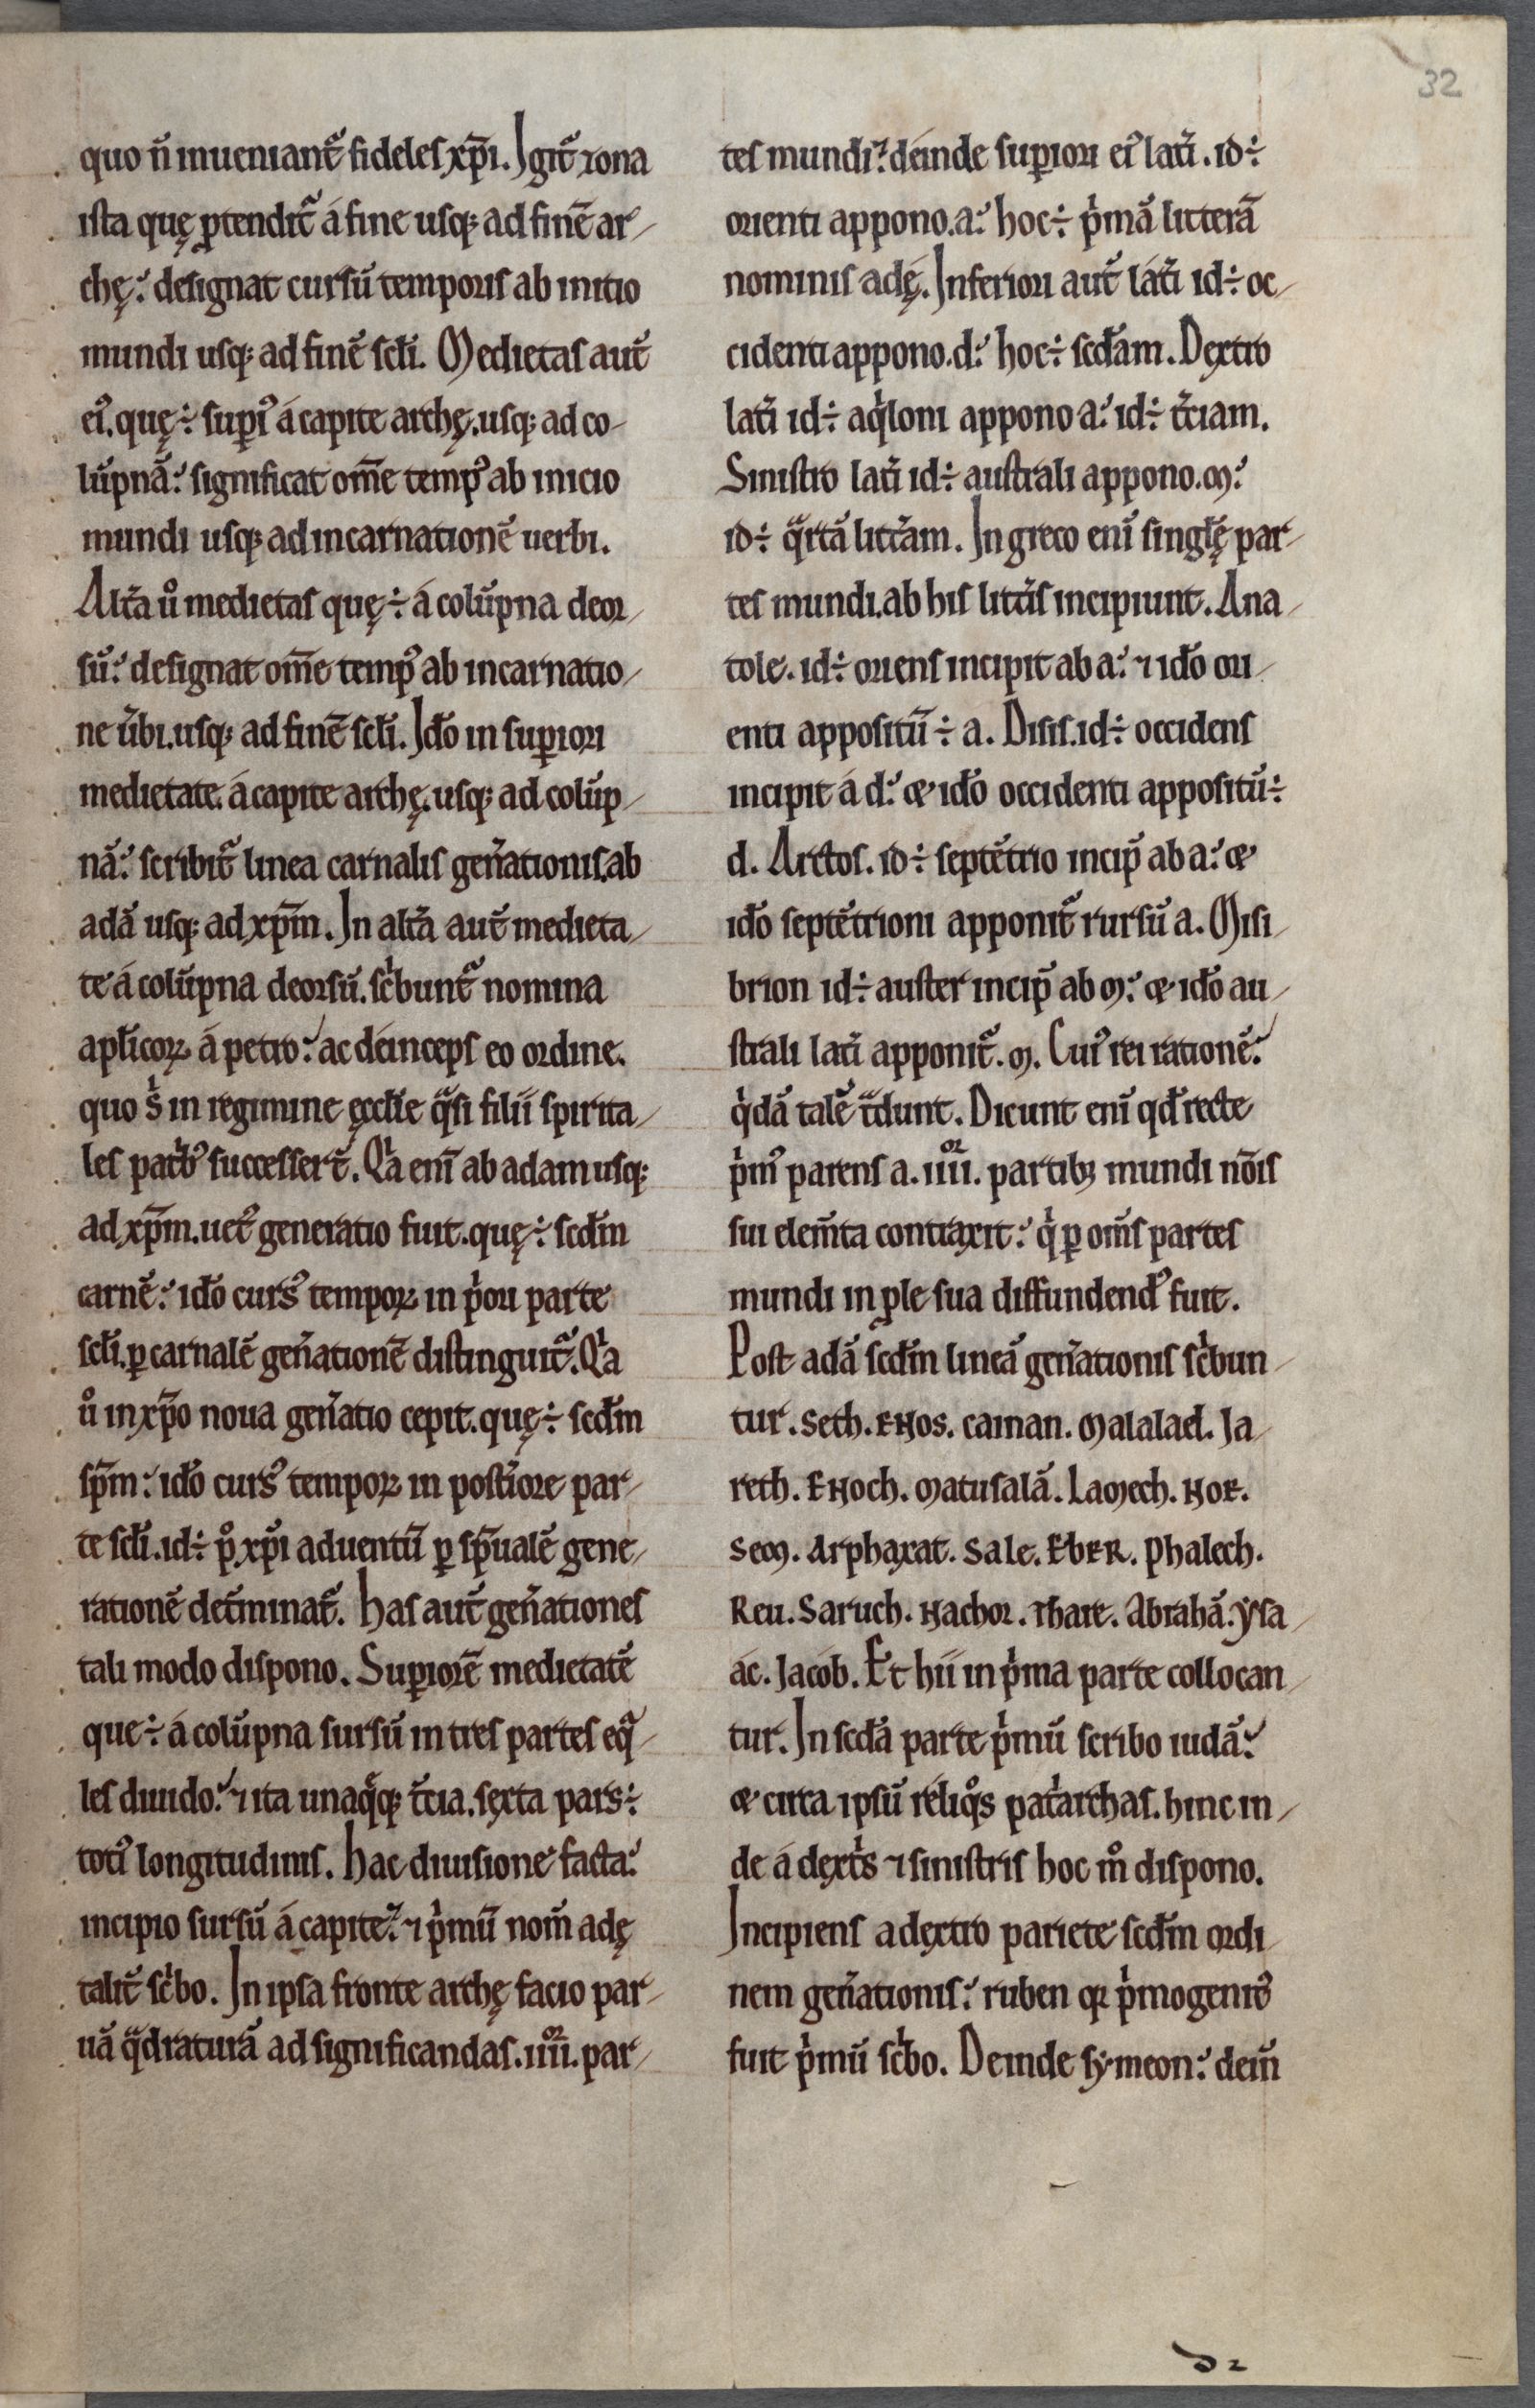 32
quo n̄ inueniant᷑ fideles xp̄i. Igit᷑ zona
ista quę ꝑtendit᷑ á fine usq; ad finē ar⁄
chę.ʼ designat cursū temporis ab initio
mundi usq; ad finē scłi. Medietas aut̄
eiꝰ. quę ÷ supiꝰ á capite archę. usq; ad co⁄
lūpnā.ʼ significat om̄e tempꝰ ab inicio
mundi usq; ad incarnationē uerbi.
Alt̄a ů medietas quę ÷ á colūpna deor⁄
sū.ʼ designat om̄e tempꝰ ab incarnatio⁄
ne ūbi. usq; ad finē scłi. Idō in supiori
medietate. á capite archę. usq; ad colūp⁄
nā.ʼ scribit᷑ linea carnalis gen̄ationis. ab
adā usq; ad xp̄m. In alt̄a aut̄ medieta⁄
te á colūpna deorsū. sc̍bunt᷑ nomina
apłicoꝝ á petro.ʼ ac déinceps eo ordine.
quo s̍ in regimine ęcclīe q̄si filii spirita⁄
les pat̍bꝰ successer̄t. Q̍a enī ab adam usq;
ad xp̄m. uetꝰ generatio fuit. quę ÷ scd̄m
carnē.ʼ idō cursꝰ tempoꝝ in p̍ori parte
scłi. ꝑ carnalē gen̄ationē distinguit᷑. Q̍a
ů in xp̄o noua gen̄atio cepit. quę ÷ scd̄m
sp̄m.ʼ idō cursꝰ tempoꝝ in post̄iore par⁄
te scłi. id ÷ p̊ xp̄i aduentū ꝑ sp̄ualē gene⁄
rationē det̄minat᷑. Has aut̄ gen̄ationes
tali modo dispono. Supiorē medietatē
que ÷ á colūpna sursū in tres partes eq̄⁄
les diuido.ʼ ⁊ ita unaq̄q; t̄cia. sexta pars ÷
totiꝰ longitudinis. Hac diuisione facta.ʼ
incipio sursū á capite.ʼ ⁊ p̍mū nom̄ adę
talit̄ sc̍bo. In ipsa fronte archę facio par⁄
uā q̄draturā ad significandas. iiii.or par⁄
tes mundi.ʼ déinde supiori eiꝰ lat̄i. id ÷
orienti appono. a.ʼ hoc ÷ p̍mā litterā
nominis adę. Inferiori aut̄ lat̄i id ÷ oc⁄
cidenti appono. d.ʼ hoc ÷ scd̄am. Dextro
lat̄i id ÷ aq̍loni appono a.ʼ id ÷ t̄ciam.
Sinistro lat̄i id ÷ australi appono. m.ʼ
id ÷ q̄rtā litt̄am. In greco enī singl̄ę par⁄
tes mundi. ab his litt̄is incipiunt. Ana⁄
tole. id ÷ oriens incipit ab a.ʼ ⁊ idō ori⁄
enti appositū ÷ a. Disis. id ÷ occidens
incipit á d.ʼ & idō occidenti appositū ÷
d. Arctos. id ÷ septētrio incip̄ ab a.ʼ &
idō septētrioni apponit᷑ rursū a. Misi⁄
brion id ÷ auster incip̄ ab m.ʼ & idō au⁄
strali lat̄i apponit᷑. m. Cuiꝰ rei rationē.ʼ
q̍dā talē t̄dunt. Dicunt enī qd̄ recte
p̍mꝰ parens a. iiii.or partibꝫ mundi nōis
sui elem̄ta contraxit.ʼ q̍ ꝑ om̄s partes
mundi in ꝓle sua diffundendꝰ fuit.
Post adā scd̄m lineā gen̄ationis sc̍bun⁄
tur. Seth. ENos. cainan. Malalael. Ja⁄
reth. ENoch. Matusalā. LaMech. Noe.
Sem. Arphaxat. Sale. EbER. Phalech.
Reu. Saruch. Nachor. Thare. Abrahā. Ysa⁄
ác. Jacob. Et hii in p̍ma parte collocan⁄
tur. In scd̄a parte p̍mū scribo iudā.ʼ
& circa ipsū réliq̊s pat̍archas. hinc in⁄
de á dext̍s ⁊ sinistris hoc m̊ dispono.
Incipiens a dextro pariete scd̄m ordi⁄
nem gen̄ationis.ʼ ruben qꝛ p̍mogenitꝰ
fuit p̍mū sc̍bo. Deinde symeon.ʼ dein̄